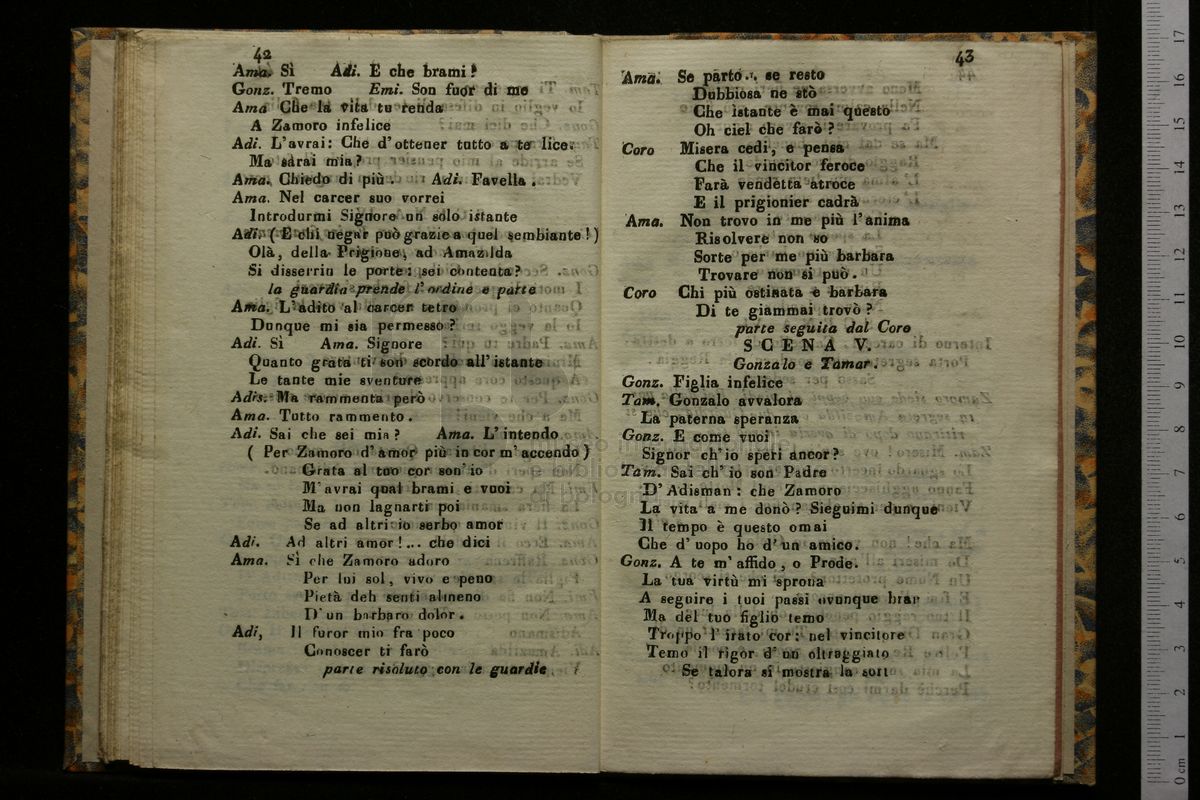 42
Ama. Sì Adi. E che brami?
Gonz. Tremo Emi. Son fuor di me
Ama Che la vita tu renda
A Zamoro infelice
Adi. L'avrai: Che d'ottener tutto a te lice.
Ma sarai mia?
Ama. Chiedo di più. Adi. Favella.
Ama. Nel carcer suo vorrei
Introdurmi Signore un solo istante
Adi. ( E chi negar può grazie a quel sembiante!)
Olà, della Prigione, ad Amazilda
Si disserrin le porte: sei contenta?
la guardia prende l'ordine e parte
Ama. L'adito al carcer tetro
Dunque mi sia permesso?
Adi. Sì Ama. Signore
Quanto grata ti son scordo all'istante
Le tante mie sventure
Adis. Ma rammenta però
Ama. Tutto rammento.
Adi. Sai che sei mia? Ama. L'intendo
( Per Zamoro d'amor più in cor m'accendo)
Grata al tuo cor son'io
M'avrai qual brami e vuoi
Ma non lagnarti poi
Se ad altri io serbo amor
Adi. Ad altri amor!... che dici
Ama. Sì che Zamoro adoro
Per lui sol, vivo e peno
Pietà deh senti almeno
D'un barbaro dolor.
Adi, Il furor mio fra poco
Conoscer ti farò
parte risoluto con le guardie
43
Ama. Se parto.. se resto
Dubbiosa ne stò
Che istante è mai questo
Oh ciel che farò?
Coro Misera cedi, e pensa
Che il vincitor feroce
Farà vendetta atroce
E il prigionier cadrà
Ama. Non trovo in me più l'anima
Risolvere non so
Sorte per me più barbara
Trovare non si può.
Coro Chi più ostinata e barbara
Di te giammai trovò?
parte seguita dal Coro
SCENA V.
Gonzalo e Tamar.
Gonz. Figlia infelice
Tam. Gonzalo avvalora
La paterna speranza
Gonz. E come vuoi
Signor ch'io speri ancor?
Tam. Sai ch'io son Padre
D'Adisman: che Zamoro
La vita a me donò? Sieguimi dunque
Il tempo è questo omai
Che d'uopo ho d'un amico.
Gonz. A te m'affido, o Prode.
La tua virtù mi sprona
A seguire i tuoi passi ovunque brar
Ma del tuo figlio temo
Troppo l'irato cor: nel vincitore
Temo il rigor d'un oltraggiato
Se talora si mostra la sort